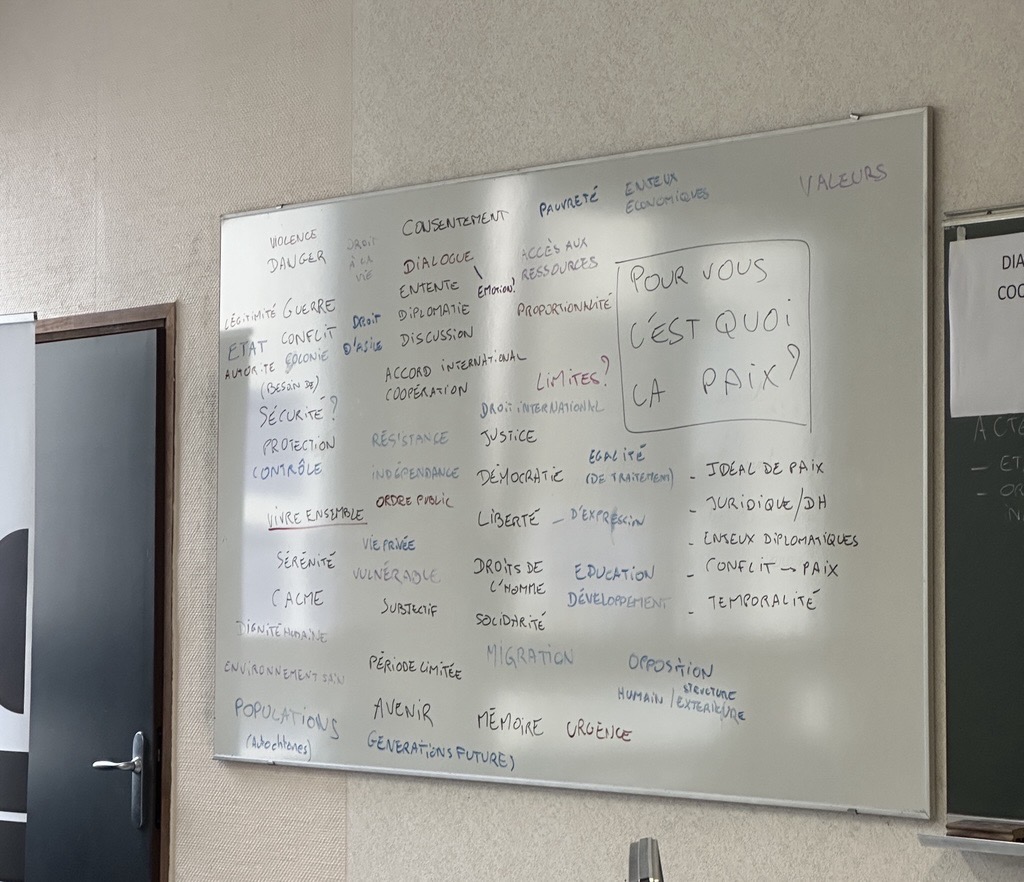 VIOLENCE
DANGER
LÉGITIMITÉ GUERRE
ETAT CONFLIT
AUTORITÉ COLONIE
(BESOIN DE)
SÉCURITÉ?
PROTECTION
CONTRÔLE
VIVRE ENSEMBLE
SÉRÉNITÉ
CALME
DIGNITÉ HUMAINE
ENVIRONNEMENT SAIN
POPULATIONS
(Autochtones)
DROIT
À LA
VIE
DROIT
D'ASILE
RÉSISTANCE
INDÉPENDANCE
ORDRE PUBLIC
VIE PRIVÉE
VULNÉRABLE
SUBJECTIF
PÉRIODE LIMITÉE
AVENIR
GENERATIONS FUTURE)
CONSENTEMENT
DIALOGUE
EMOTION!
ENTENTE
DIPLOMATIE
DISCUSSION
ACCORD INTERNATIONAL
COOPÉRATION
DROIT INTERNATIONAL
JUSTICE
DÉMOCRATIE
LIBERTÉ — D'EXPRESSION
DROITS DE
L'HOMME
SOLIDARITÉ
MIGRATION
MÉMOIRE URGENCE
PAUVRETÉ
ENJEUX
ÉCONOMIQUES
ACCÈS AUX
RESSOURCES
PROPORTIONALITÉ
LIMITES?
EGALITÉ
(DE TRAITEMENT)
EDUCATION
DÉVELOPPEMENT
OPPOSITION
HUMAIN / STRUCTURE
EXTERIEURE
VALEURS
POUR VOUS
C'EST QUOI
LA PAIX?
- IDEAL DE PAIX
- JURIDIQUE/DH
- ENJEUX DIPLOMATIQUES
- CONFLIT → PAIX
- TEMPORALITÉ
DIA
COO
ACTE
- ET
- OR
IN